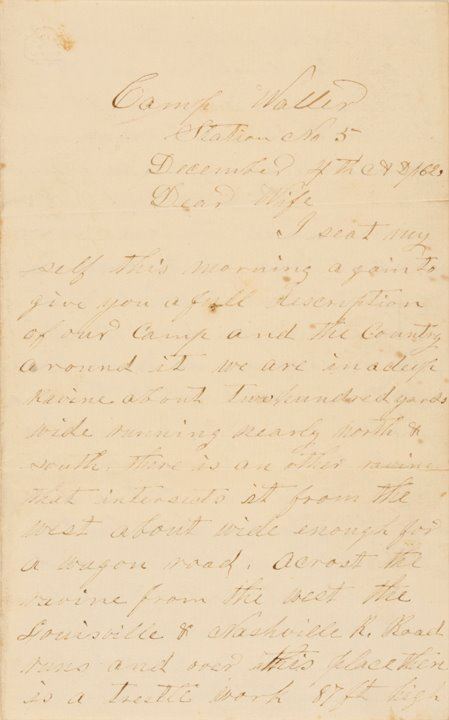 Camp Waller
Station No 5
December 4th A D / 62
Dear Wife
I seat my
self this morning again to
give you a full description
of our Camp and the Country
around it we are in a deep
Ravine about two hundred yards
wide running nearly North &
South. there is an other ravine
that intersects it from the
West about wide enough for
a wagon road. acrost the
ravine from the west the
Louisville & Nashville R. Road
runs and over this place their
is a trestle work 87 ft high